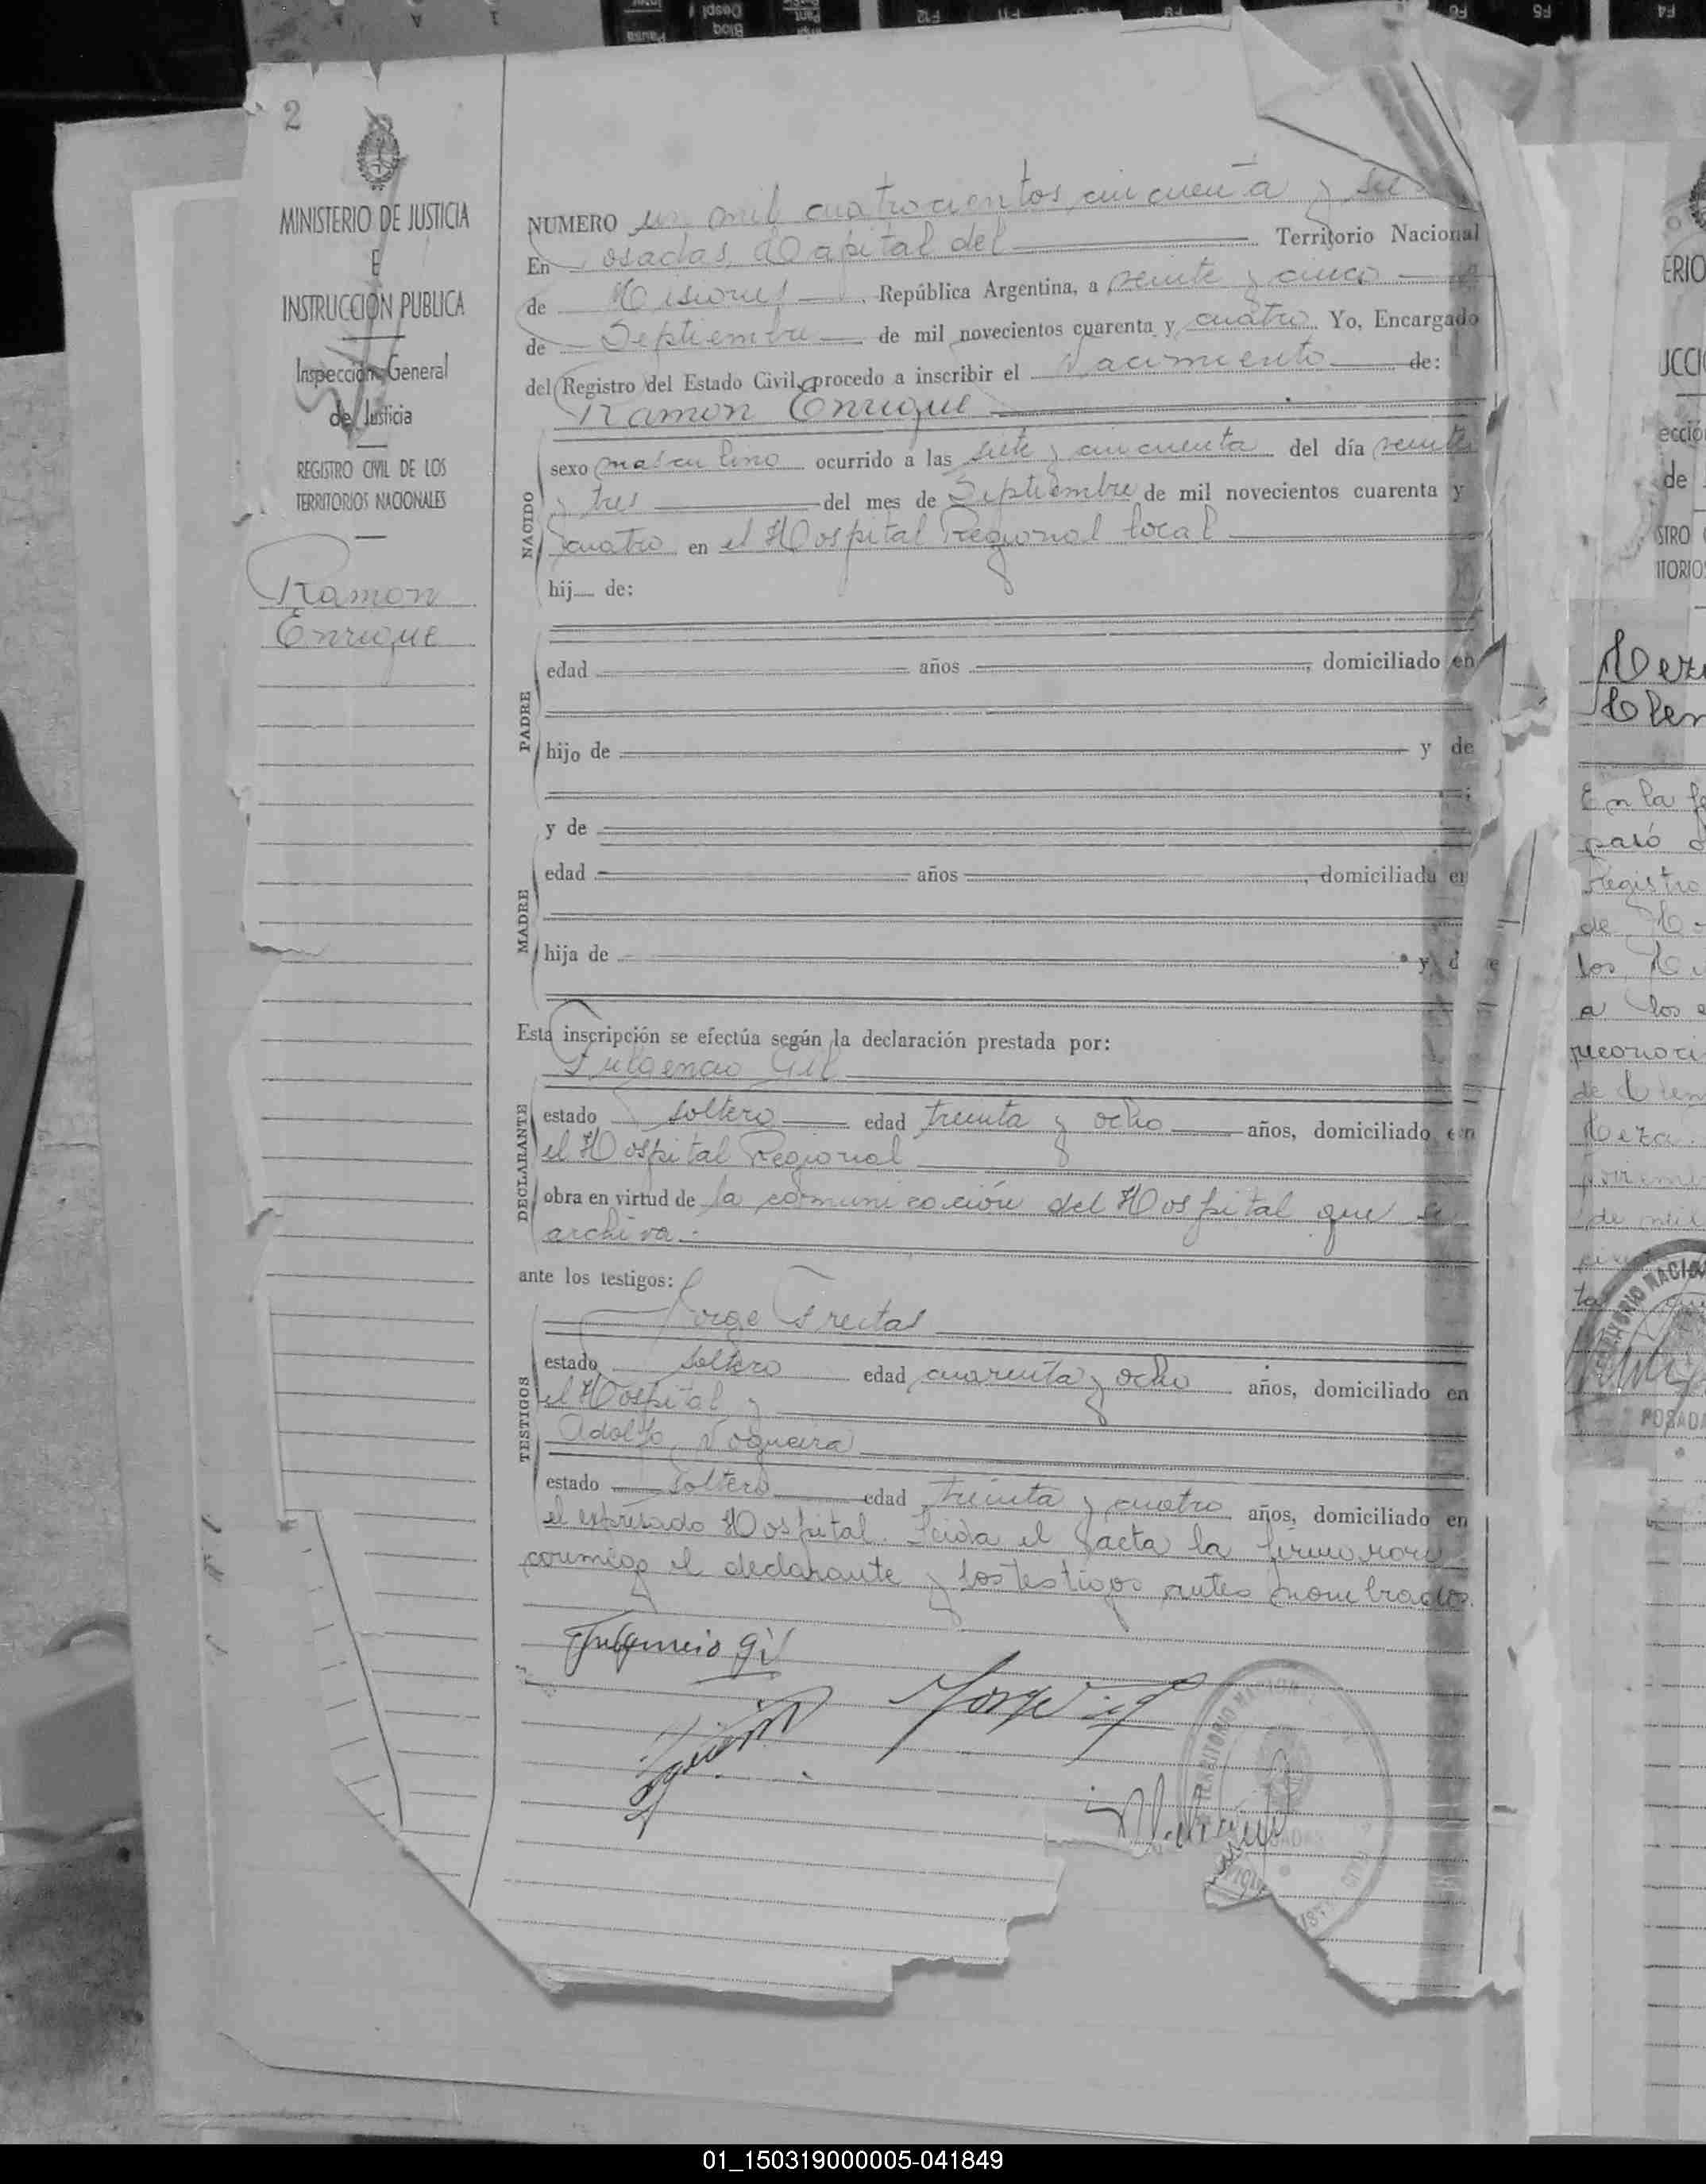 2
MINISTERIO DE JUSTICIA
E
INSTRUCCION PUBLICA
Inspección General
de Justicia
REGISTRO CIVIL DE LOS
TERRITORIOS NACIONALES
Ramon
Enrique
NUMERO un mil cuatrocientos cincuenta y
En Posadas, Capital del Territorio Nacional
de Misiones, República Argentina, a veinte y cinco
de Septiembre de mil novecientos cuarenta y cuatro Yo, Encargado
del Registro del Estado Civil, procedo a inscribir el Nacimiento de:
Ramon Enrique
NACIDO
sexo masculino ocurrido a las siete y cincuenta del día veinte
y tres del mes de Septiembre de mil novecientos cuarenta y
cuatro en el Hospital Regional local
hij de:
PADRE
edad años , domiciliado en
hijo de y de
y de
MADRE
edad años , domiciliada en
hija de y de
Esta inscripción se efectúa según la declaración prestada por:
Fulgencio Gil
DECLARANTE
estado soltero edad treinta y ocho años, domiciliado en
el Hospital Regional
obra en virtud de la comunicación del Hospital que se
archiva.-
ante los testigos:
Jorge Freitas
TESTIGOS
estado soltero edad cuarenta y ocho años, domiciliado en
el Hospital y
Adolfo Nogueira
estado soltero edad treinta y cuatro años, domiciliado en
el expresado Hospital. Leida el acta la firmaron
conmigo el declarante y los testigos antes nombrados.
Fulgencio Gil
TERRITORIO NACIONAL
Meza
Clem
En la
pasó
Registro
de
los
a los
reconoci
de Clem
Meza.
de mil
TERRITORIO NACIONAL
POSADAS
01_150319000005-041849